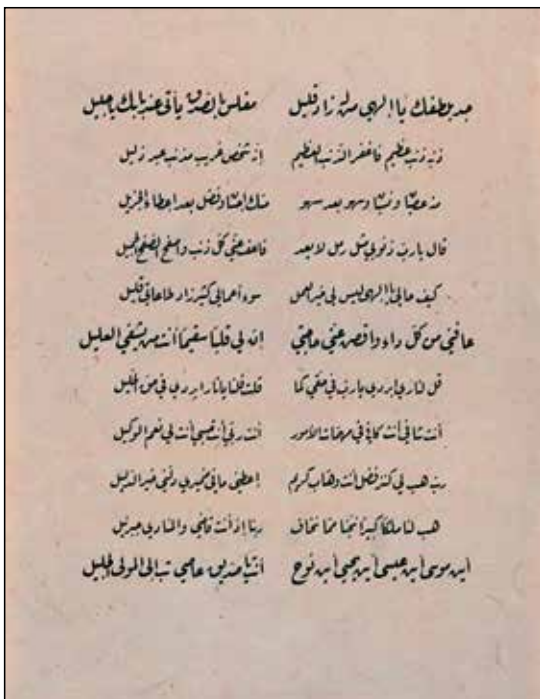 جد بلطفك يا إلهي من له زاد قليل مفلس بالصدق يأتي عند بابك يا جليل
ذنبه ذنب عظيم فاغفر الذنب العظيم إنه شخص غريب مذنب عبد ذليل
منه عصيان ونسيان وسهو بعد سهو منك إحسان وفضل بعد إعطاء الجزيل
قال يا رب ذنوبي مثل رمل لا يعد فاعف عني كل ذنب واصفح الصفح الجميل
كيف حالي يا إلهي ليس لي خير العمل سوء أعمالي كثير زاد طاعاتي قليل
عافني من كل داء واقض عني حاجتي إن لي قلبا سقيما أنت من يشفي العليل
قل لنار ابردي يا رب في حقي كما قلت قلنا يا نار ابردي في حق الخليل
أنت شافي أنت كافي في مهمات الأمور أنت ربي أنت حسبي أنت لي نعم الوكيل
رب هب لي كنز فضل أنت وهاب كريم أعطني ما في ضميري دلني خير الدليل
هب لنا ملكا كبيرا نجنا مما نخاف ربنا إذ أنت قاضي والمنادي جبرئيل
أين موسى أين عيسى أين يحيى أين نوح أنت يا صديق عاصي تب إلى المولى الجليل